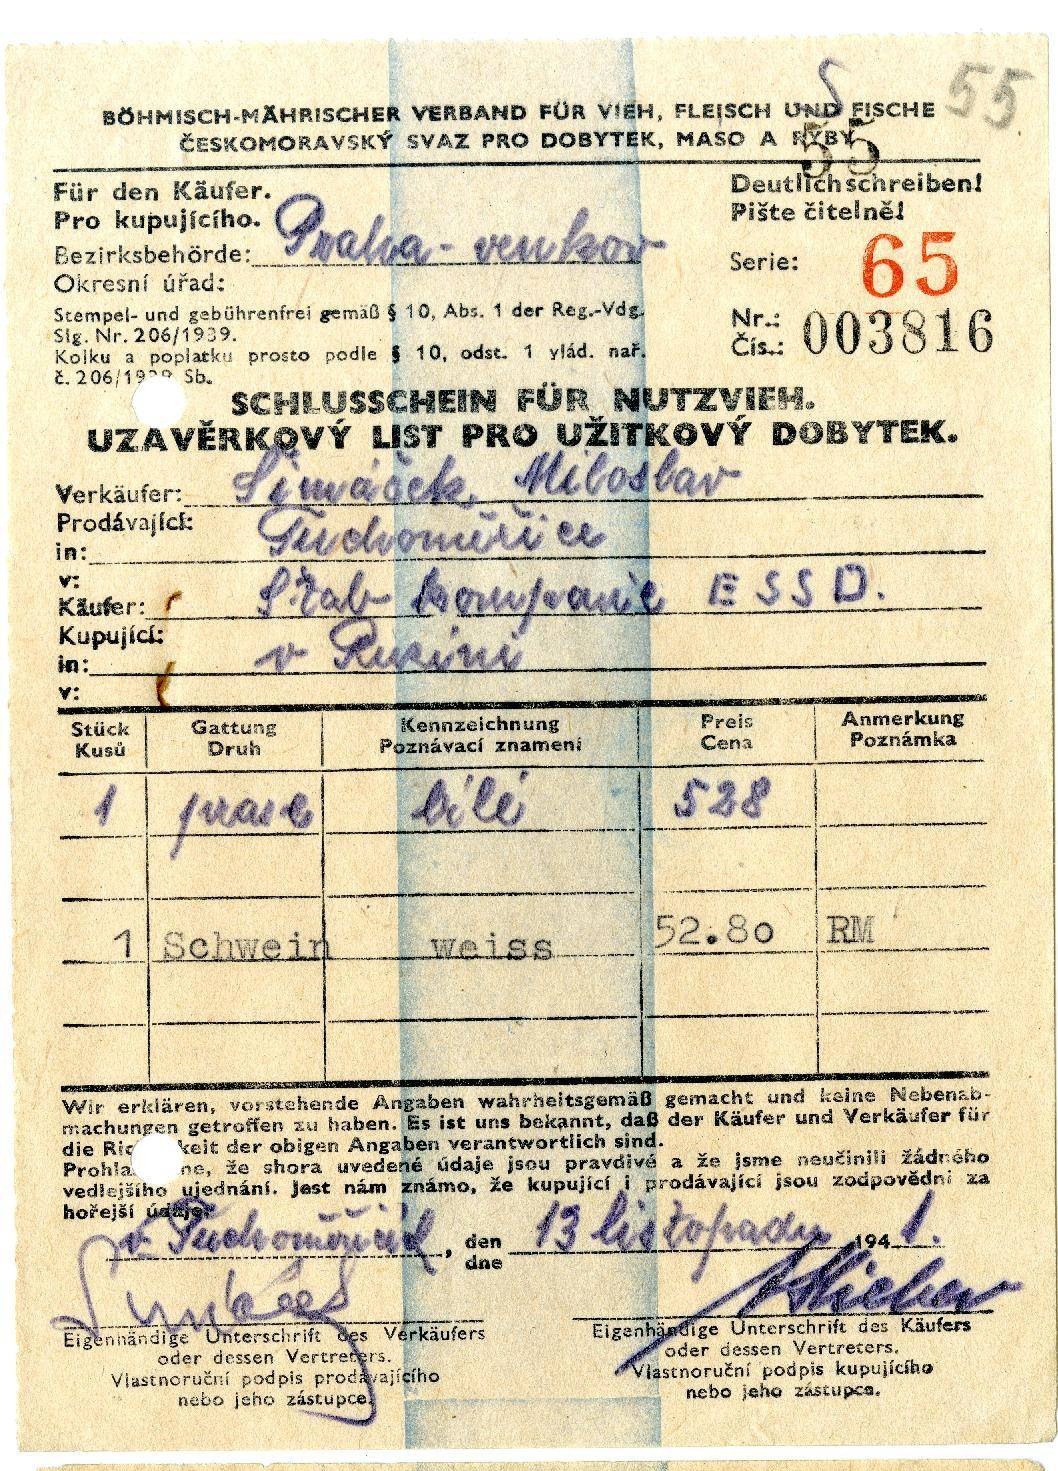 55
BÖHMISCH-MÄHRISCHER VERBAND FÜR VIEH, FLEISCH UND FISCHE
ČESKOMORAVSKÝ SVAZ PRO DOBYTEK, MASO A RYBY
55
Für den Käufer.
Pro kupujícího.
Deutlich schreiben!
Pište čitelně!
Bezirksbehörde: Praha-venkov
Okresní úřad:
Serie: 65
Stempel- und gebührenfrei gemäß § 10, Abs. 1 der Reg.-Vdg.
Slg. Nr. 206/1939.
Kolku a poplatku prosto podle § 10, odst. 1 vlád. nař.
č. 206/1939 Sb.
Nr.:
Čís.: 003816
SCHLUSSCHEIN FÜR NUTZVIEH.
UZAVĚRKOVÝ LIST PRO UŽITKOVÝ DOBYTEK.
Verkäufer: Šimáček, Miloslav
Prodávající:
in: Tuchoměřice
v:
Käufer: Štab kompanie ESSD.
Kupující:
in: v Ruzini
v:
Stück Gattung Kennzeichnung Preis Anmerkung
Kusů Druh Poznávací znamení Cena Poznámka
1 prase bílé 528
1 Schwein weiss 52.80 RM
Wir erklären, vorstehende Angaben wahrheitsgemäß gemacht und keine Nebenab-
machungen getroffen zu haben. Es ist uns bekannt, daß der Käufer und Verkäufer für
die Ric keit der obigen Angaben verantwortlich sind.
Prohla ne, že shora uvedené údaje jsou pravdivé a že jsme neučinili žádného
vedlejšího ujednání. Jest nám známo, že kupující i prodávající jsou zodpovědni za
hořejší údaje.
v Tuchoměřicích, den 13 listopadu 1941.
dne
Eigenhändige Unterschrift des Verkäufers
oder dessen Vertreters.
Vlastnoruční podpis prodávajícího
nebo jeho zástupce.
Eigenhändige Unterschrift des Käufers
oder dessen Vertreters.
Vlastnoruční podpis kupujícího
nebo jeho zástupce.